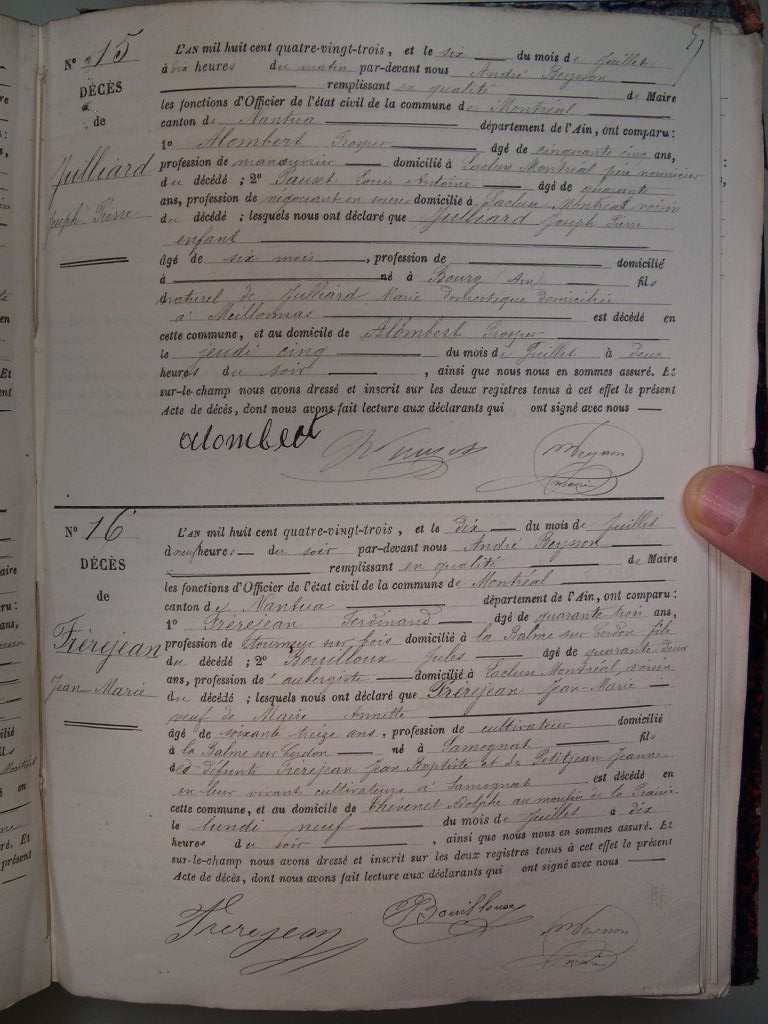 N° 15
DÉCÈS
de
Julliard
Joseph Pierre
L'AN mil huit cent quatre-vingt-trois, et le six du mois de Juillet
à dix heures du matin par-devant nous André Beynon
remplissant en qualité de Maire
les fonctions d'Officier de l'état civil de la commune de Montréal
canton de Nantua département de l'Ain, ont comparu :
1° Alombert Prosper âgé de cinquante cinq ans,
profession de manoeuvrier domicilié à Lacluse Montréal père nourricier
du décédé ; 2° Louis Antoine âgé de quarante
ans, profession de négociant en domicilié à Lacluse Montréal voisin
du décédé ; lesquels nous ont déclaré que Julliard Joseph Pierre
enfant
âgé de six mois, profession de domicilié
à né à Bourg (Ain) fils
naturel de Julliard Marie domestique domiciliée
à Meillonnas est décédé en
cette commune, et au domicile de Alombert Prosper
le jeudi cinq du mois de Juillet à deux
heures du soir, ainsi que nous nous en sommes assuré. Et
sur-le-champ nous avons dressé et inscrit sur les deux registres tenus à cet effet le présent
Acte de décès, dont nous avons fait lecture aux déclarants qui ont signé avec nous
alombert
N° 16
DÉCÈS
de
Frèrejean
Jean Marie
L'AN mil huit cent quatre-vingt-trois, et le dix du mois de Juillet
à neuf heures du soir par-devant nous André Beynon
remplissant en qualité de Maire
les fonctions d'Officier de l'état civil de la commune de Montréal
canton de Nantua département de l'Ain, ont comparu :
1° Frèrejean Ferdinand âgé de quarante trois ans,
profession de tourneur sur bois domicilié à la Balme sur Cerdon fils
du décédé ; 2° Bouilloux Jules âgé de quarante deux
ans, profession d'aubergiste domicilié à Lacluse Montréal, voisin
du décédé ; lesquels nous ont déclaré que Frèrejean Jean-Marie
veuf de Maire Annette
âgé de soixante treize ans, profession de cultivateur domicilié
à la Balme sur Cerdon né à Samognat fils
de défunts Frèrejean Jean Baptiste et de Petitjean Jeanne
en leur vivant cultivateurs à Samognat est décédé en
cette commune, et au domicile de Chevenet Adolphe au moulin de la Prairie
le lundi neuf du mois de Juillet à dix
heures du soir, ainsi que nous nous en sommes assuré. Et
sur-le-champ nous avons dressé et inscrit sur les deux registres tenus à cet effet le présent
Acte de décès, dont nous avons fait lecture aux déclarants qui ont signé avec nous
Frèrejean
Bouilloux